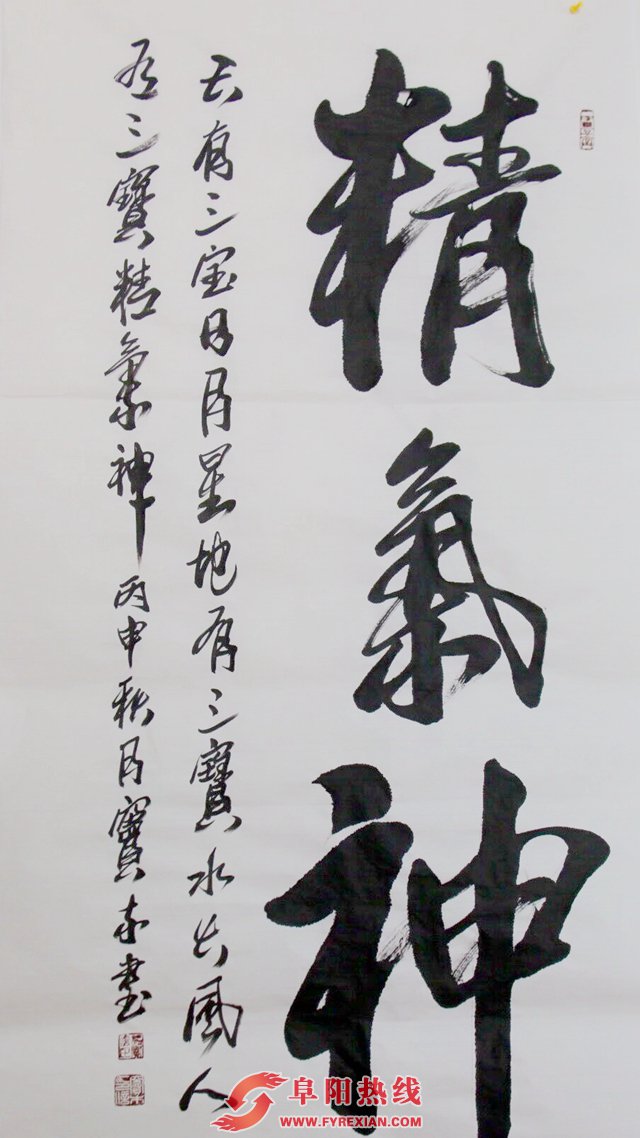 精氣神
天有三宝日月星地有三寶水火風人
有三寶精氣神丙申秋月寶東書
阜阳热线
WWW.FYREXIAN.COM